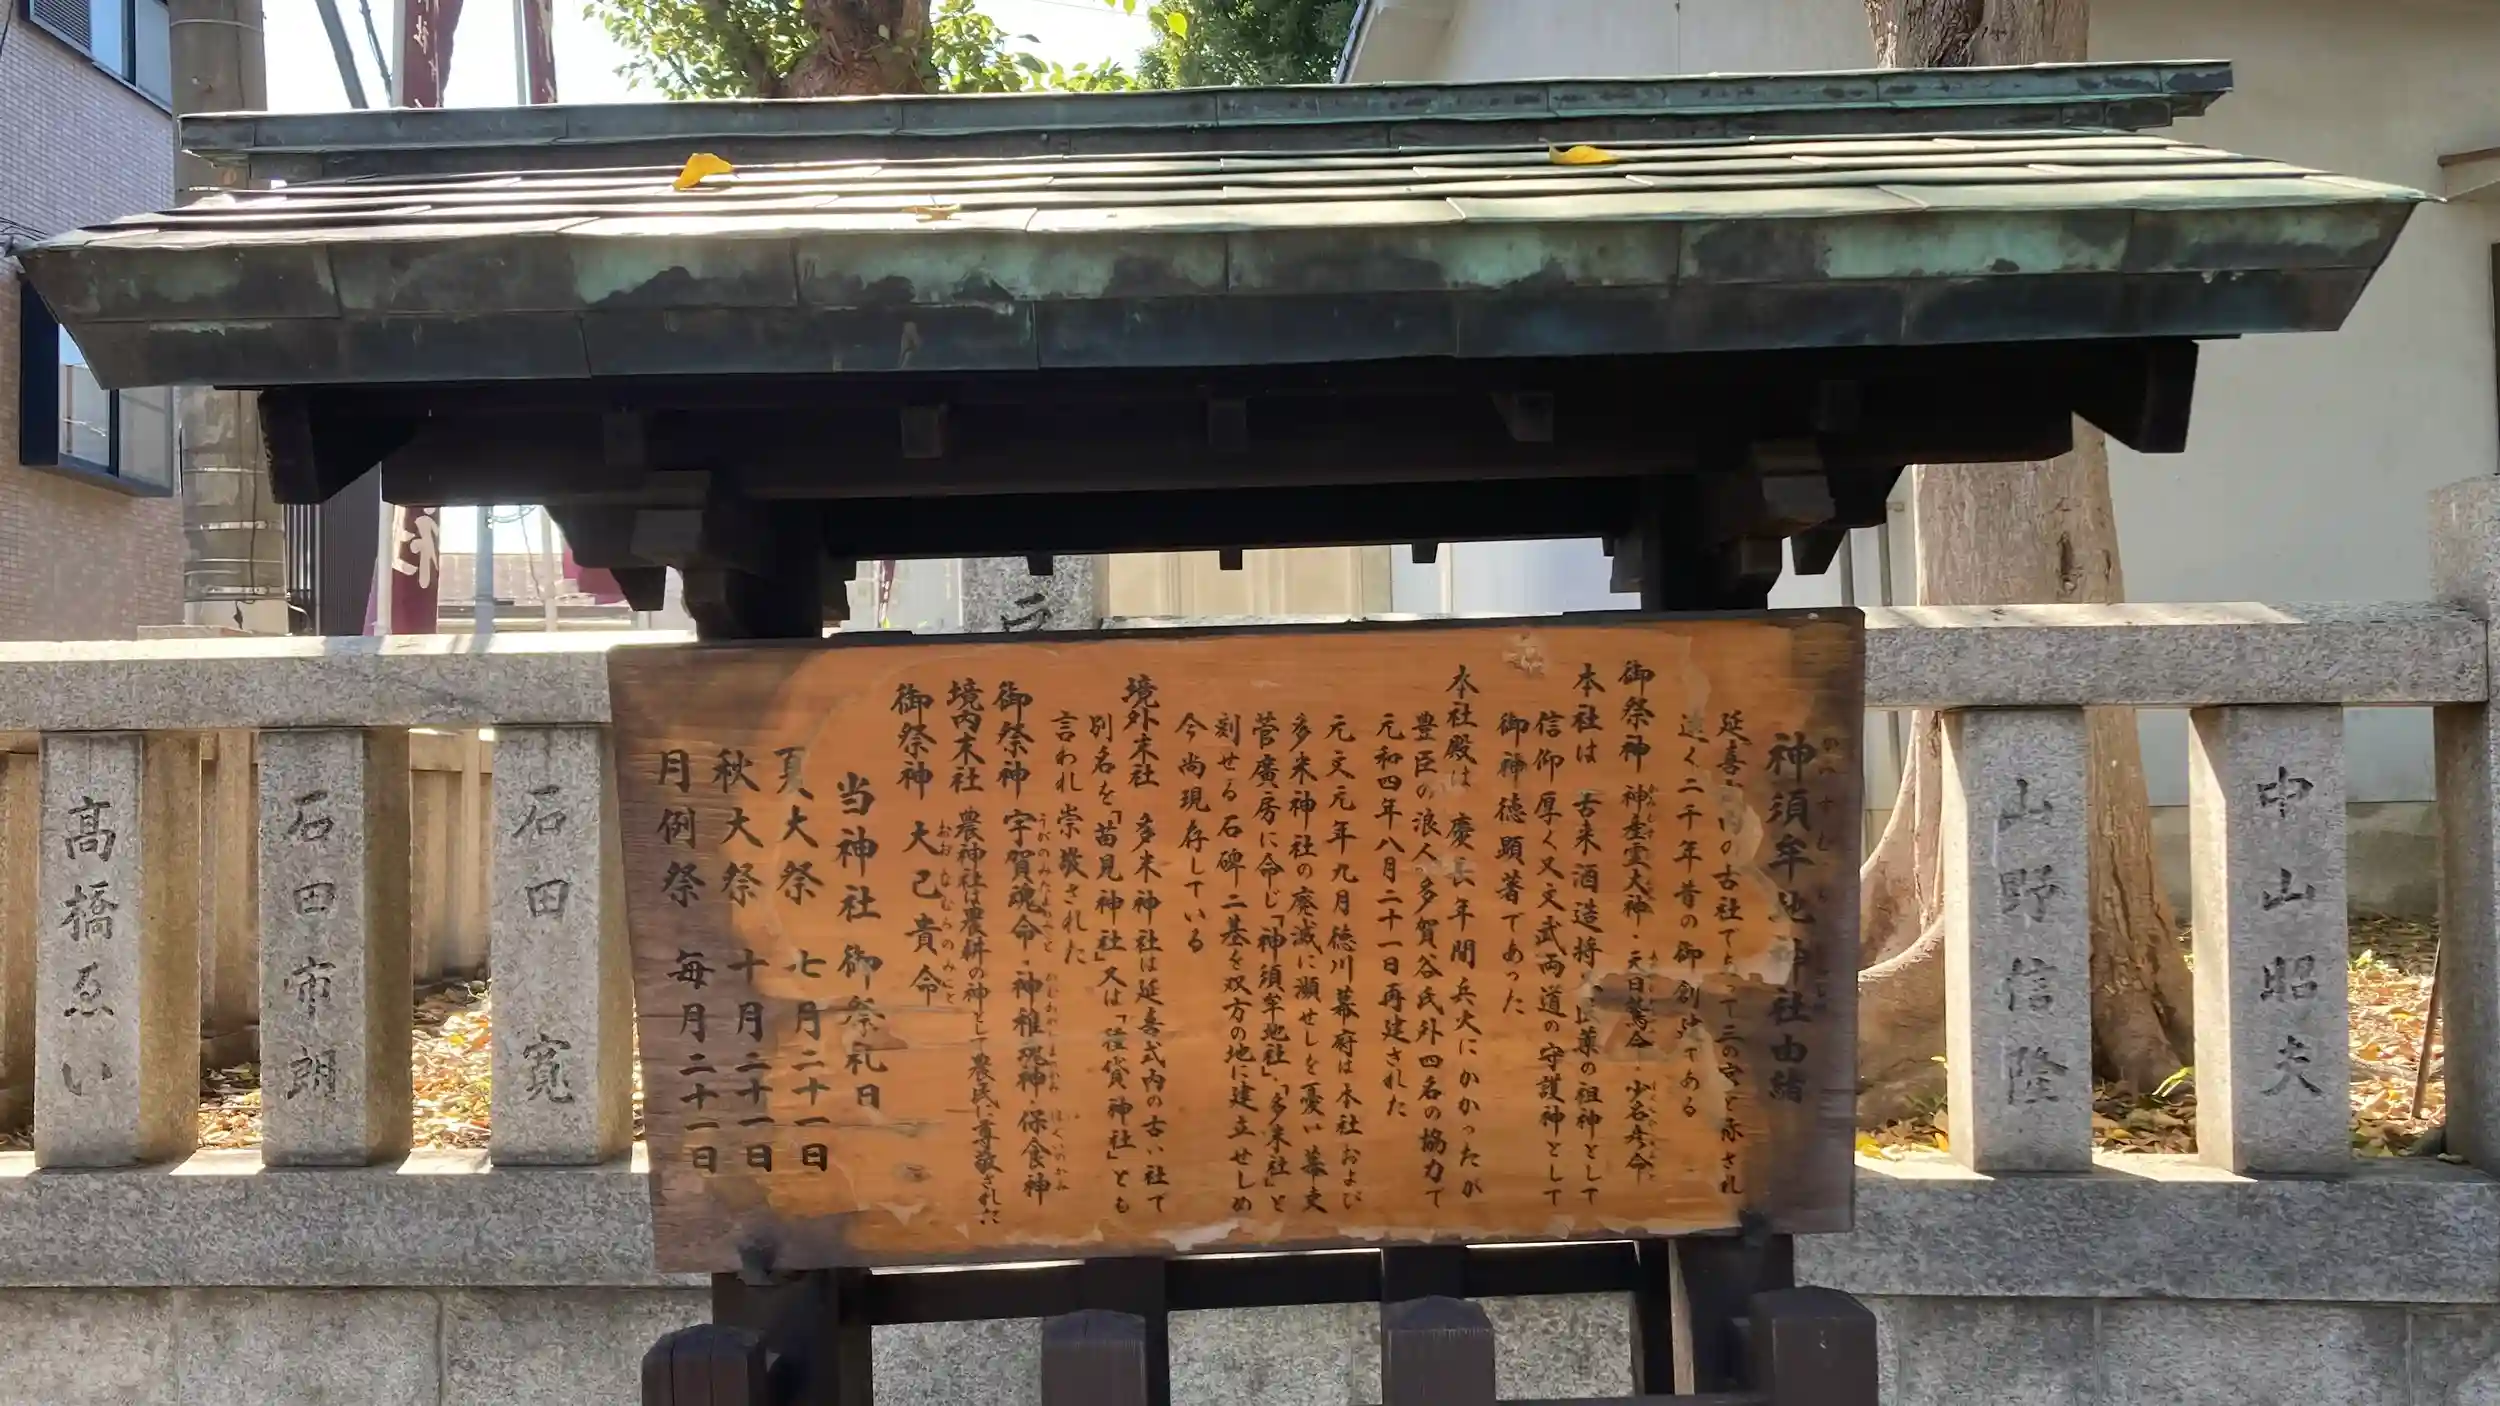 神須牟地神社由緒
延喜式内の古社であって三の宮と称され
遠く二千年昔の御創建である
御祭神 神産霊大神・天日鷲命・少名彦命
本社は 古来酒造 医薬の祖神として
信仰厚く又文武両道の守護神として
御神徳顕著であった
本社殿は 慶長年間兵火にかかったが
豊臣の浪人 多賀谷氏外四名の協力で
元和四年八月二十一日再建された
元文元年九月徳川幕府は本社および
多米神社の廃滅に瀕せしを憂い幕吏
菅廣房に命じ「神須牟地社」、「多米社」と
刻せる石碑二基を双方の地に建立せしめ
今尚現存している
境外末社 多米神社は延喜式内の古い社で
別名を「苗見神社」又は「種貸神社」とも
言われ崇敬された
御祭神 宇賀魂命・神稚魂神 保食神
境内末社 農神社は農耕の神として農民に尊敬された
御祭神 大己貴命
おおなむちのみこと
当神社 御祭礼日
夏大祭 七月二十一日
秋大祭 十月二十一日
月例祭 毎月二十一日
高橋ゑい
石田市朗
石田 寛
山野信隆
中山昭夫
社